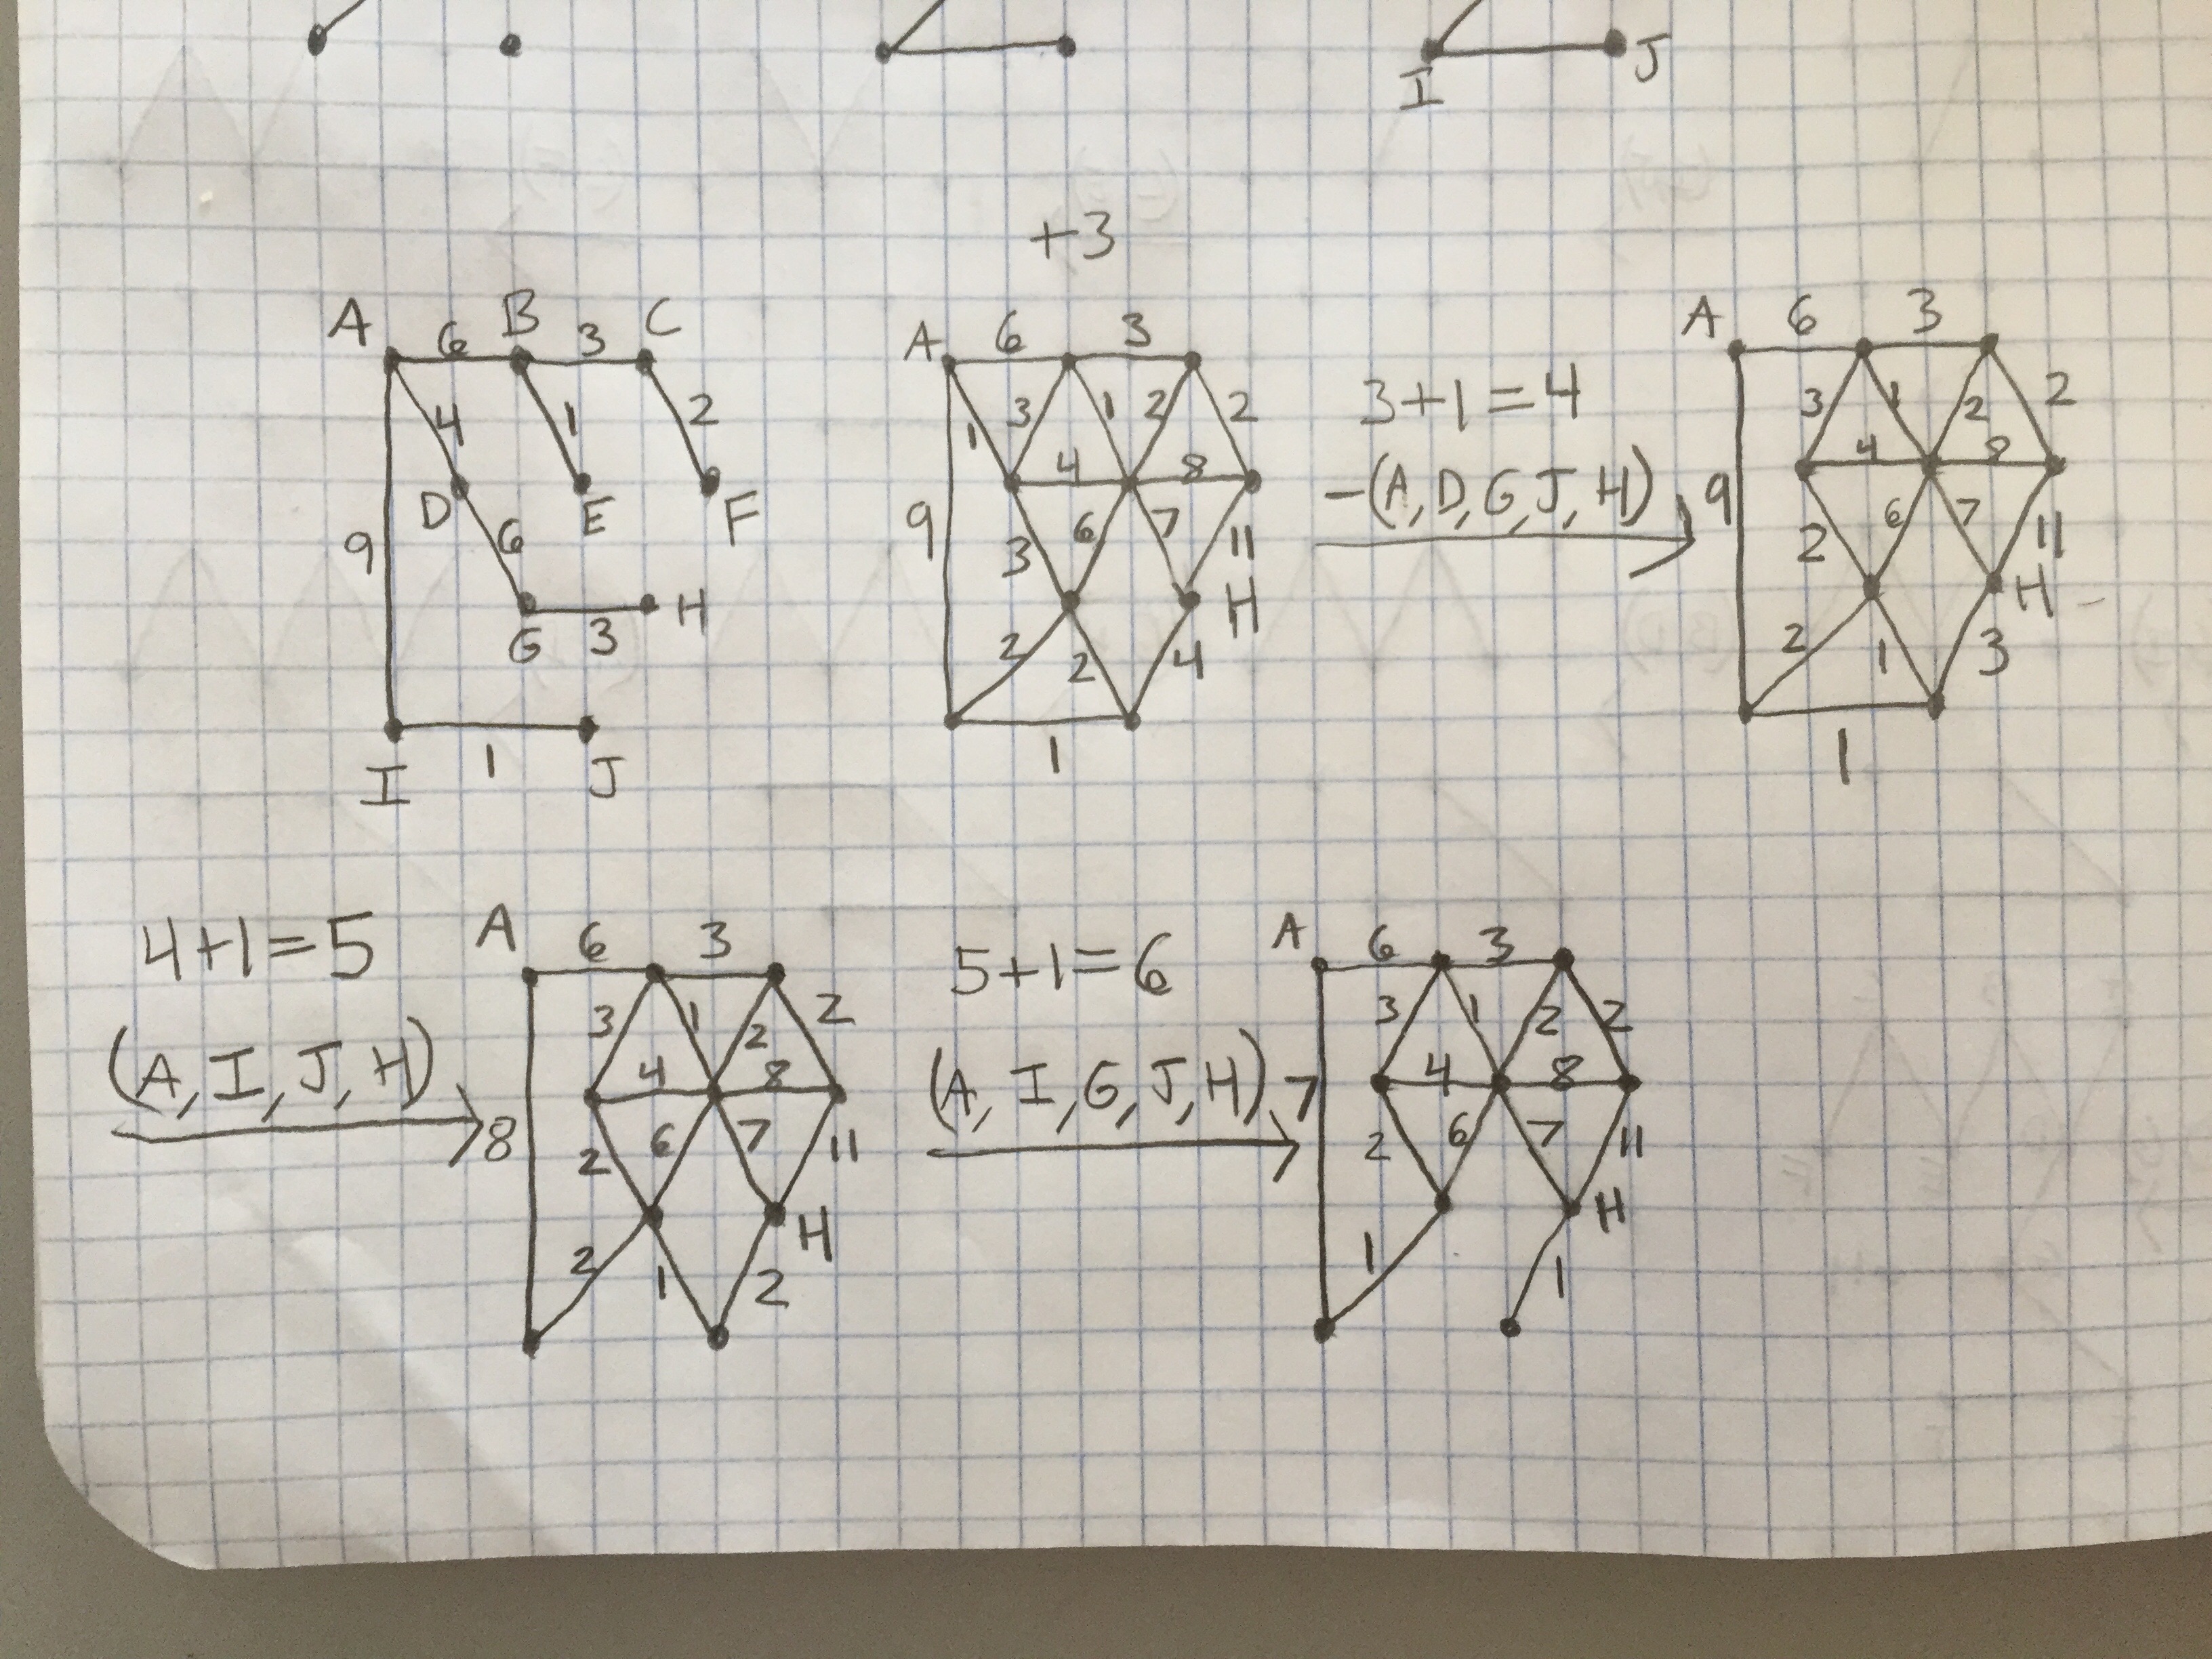 I J
+3
A 6 B 3 C
4 1 2
D E F
9 6
G 3 H
I 1 J
A 6 3
1 3 1 2 2
4 8
9 3 6 7 11
H
2 2 4
1
3+1=4
-(A,D,G,J,H)
A 6 3
3 1 2 2
4 8
9 2 6 7 11
H
2 1 3
1
4+1=5
(A,I,J,H)
A 6 3
3 1 2 2
4 8
8 2 6 7 11
H
2 1 2
5+1=6
(A,I,G,J,H)
A 6 3
3 1 2 2
4 8
7 2 6 7 11
H
1 1